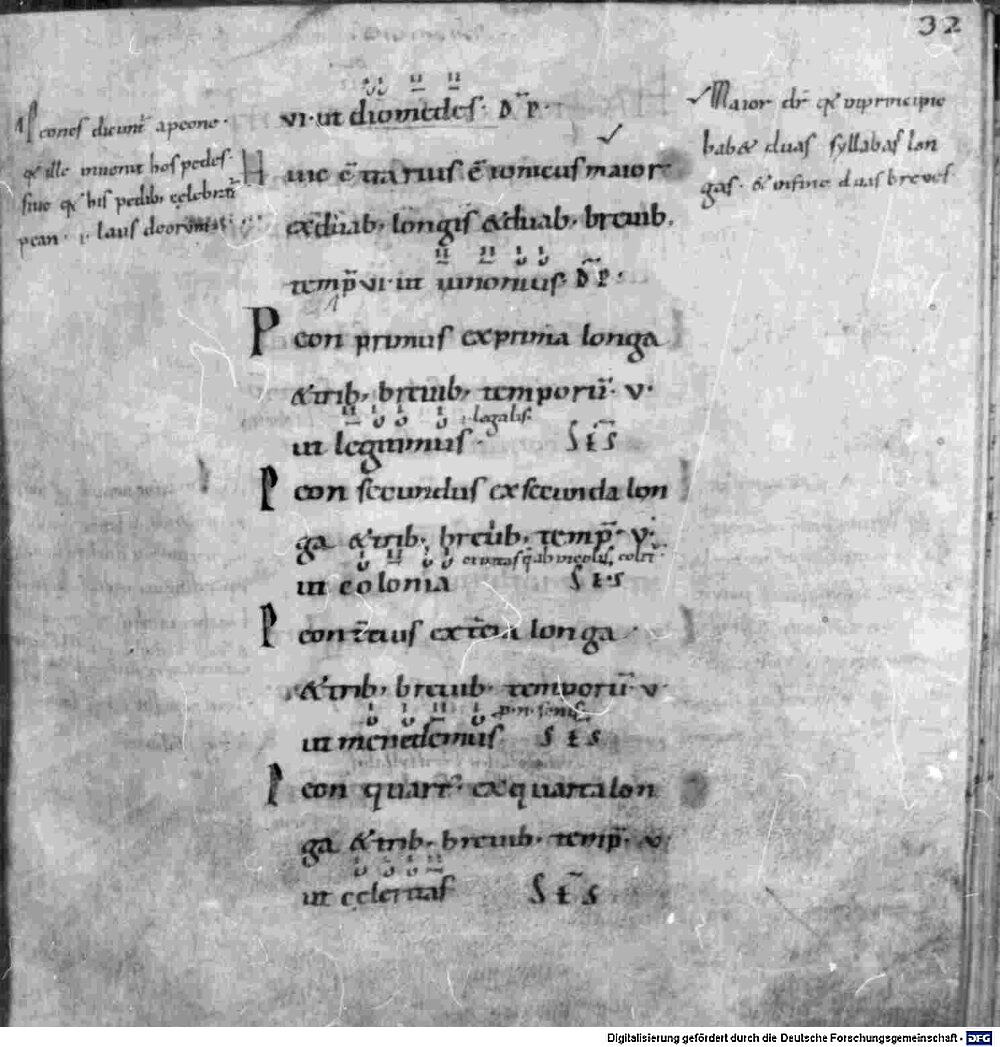 32
vi· ut diomedes· D̄ P̄·
Huic c̄trarius ē ionicus maior
ex duab, longis & duab, breuib,
temp̄ vi· ut iunonius D̄ P̄·
Peon primus ex prima longa
& trib, breuib, temporū· v·
·i· legalis·
ut legitimus· S t̄ S
Peon secundus ex secunda lon
ga & trib, breuib, temp̄· v·
ut colonia S t S
Peon t̄cius ex t̄cia longa·
& trib, breuib· temporū· v·
ut menedemus S t S
Peon quart' ex quarta lon
ga & trib, breuib· temp̄· v·
ut celeritas S t̄ S
Peones dicunt̄ apeone·
q& ille inuenit hos pedes·
siue q& his pedib, celebrat̄
pean· i· laus deorum
Maior dr̄ q& in principio
hab& duas syllabas lon
gas· & in fine duas breues·
Digitalisierung gefördert durch die Deutsche Forschungsgemeinschaft - DFG